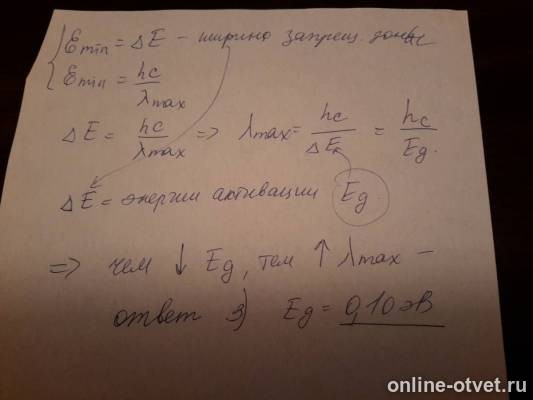 { Ɛmin = ΔE – ширина запрещ. зоны
Ɛmin = hc/λmax
ΔE = hc/λmax => λmax = hc/ΔE = hc/Eg.
ΔE = энергии активации Eg
=> чем ↓ Eg, тем ↑ λmax –
ответ 3) Eg = 0,10 эВ
online-otvet.ru